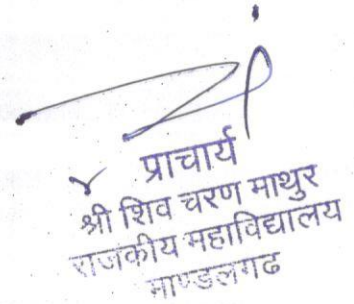 प्राचार्य
श्री शिव चरण माथुर
राजकीय महाविद्यालय
माण्डलगढ